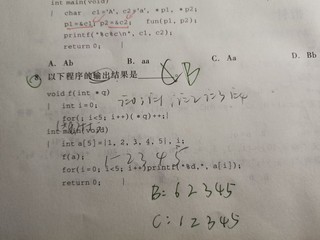 int main(void)
{ char c1='A', c2='a', *p1, *p2;
p1=&c1; p2=&c2; fun(p1, p2);
printf("%c%c\n", c1, c2);
return 0; }
A. Ab B. aa C. Aa D. Bb
8 以下程序的输出结果是 C B
void f(int * q)
{ int i=0; i=0 i=1 i=2 i=3 i=4
for(; i<5; i++)( * q)++;}
int main(void)
{ int a[5]={1, 2, 3, 4, 5}, i;
f(a); 1 2 3 4 5
for(i=0; i<5; i++)printf("%d,", a[i]);
return 0; }
B: 6 2 3 4 5
C: 1 2 3 4 5